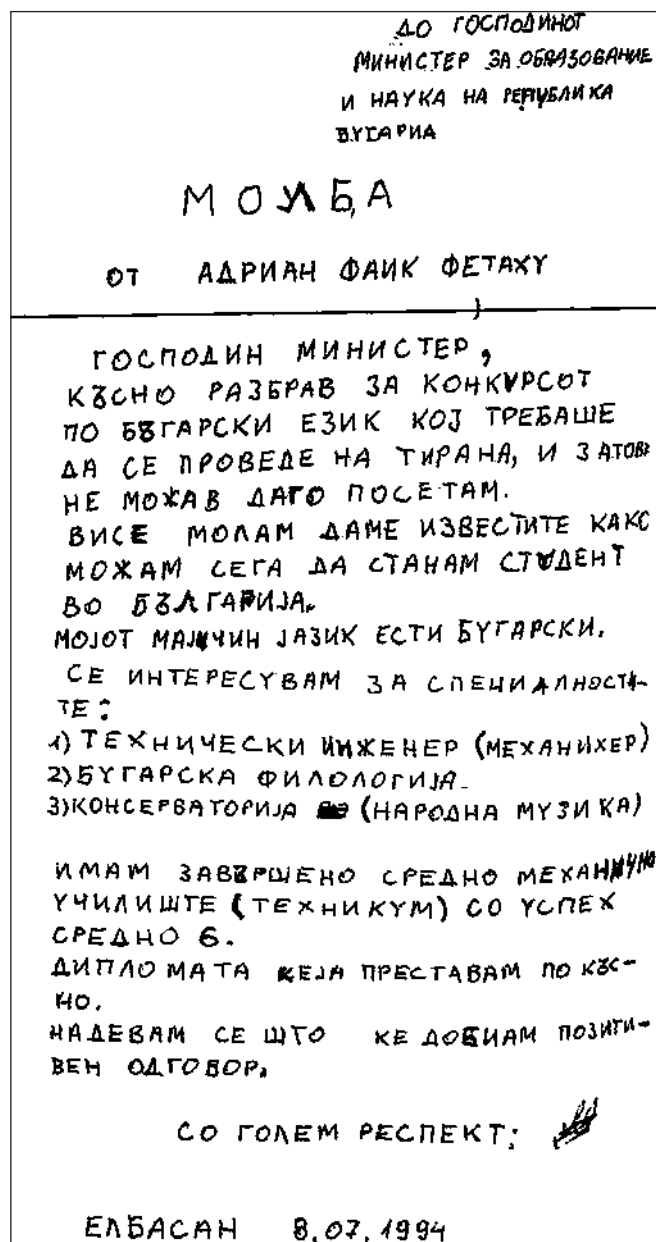 ДО ГОСПОДИНОТ
МИНИСТЕР ЗА ОБРАЗОВАНИЕ
И НАУКА НА РЕПУБЛИКА
БУГАРИА
МОЛБА
ОТ АДРИАН ФАИК ФЕТАХУ
ГОСПОДИН МИНИСТЕР,
КЪСНО РАЗБРАВ ЗА КОНКУРСОТ
ПО БЪГАРСКИ ЕЗИК КОЈ ТРЕБАШЕ
ДА СЕ ПРОВЕДЕ НА ТИРАНА, И ЗАТОВА
НЕ МОЖАВ ДАГО ПОСЕТАМ.
ВИСЕ МОЛАМ ДАМЕ ИЗВЕСТИТЕ КАКО
МОЖАМ СЕГА ДА СТАНАМ СТУДЕНТ
ВО БЪЛГАРИЈА.
МОЈОТ МАЈЧИН ЈАЗИК ЕСТИ БУГАРСКИ.
СЕ ИНТЕРЕСУВАМ ЗА СПЕЦИАЛНОСТА-
ТЕ:
1) ТЕХНИЧЕСКИ ИНЖЕНЕР (МЕХАНИХЕР)
2) БУГАРСКА ФИЛОЛОГИЈА.
3) КОНСЕРВАТОРИЈА (НАРОДНА МУЗИКА)
ИМАМ ЗАВЪРШЕНО СРЕДНО МЕХАНИЧНО
УЧИЛИШТЕ (ТЕХНИКУМ) СО УСПЕХ
СРЕДНО 6.
ДИПЛОМАТА КЕЈА ПРЕСТАВАМ ПО КЪС-
НО.
НАДЕВАМ СЕ ШТО КЕ ДОБИАМ ПОЗИТИ-
ВЕН ОДГОВОР.
СО ГОЛЕМ РЕСПЕКТ:
ЕЛБАСАН 8.07.1994